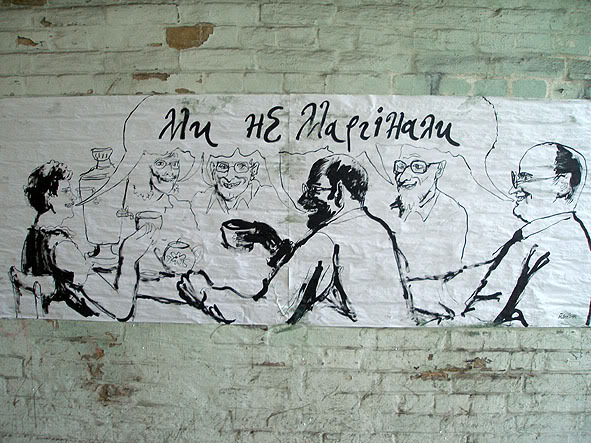 Ми не Маргінали